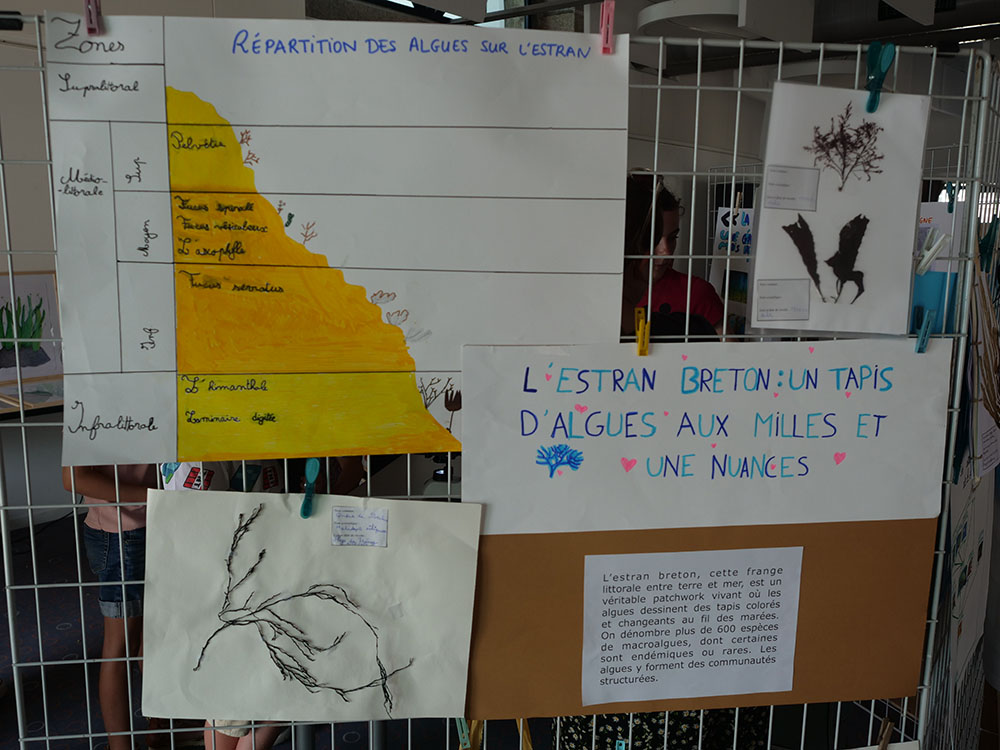 Zones
RÉPARTITION DES ALGUES SUR L'ESTRAN
Supralitoral
Médio-
littorale
Sup
Pelvétie
Moyen
Fucus spiralé
Fucus vésiculeux
L'ascophylle
Inf
Fucus serratus
Infralittorale
L'himanthale
Laminaire digité
L'ESTRAN BRETON : UN TAPIS
D'ALGUES AUX MILLES ET
UNE NUANCES
L'estran breton, cette frange
littorale entre terre et mer, est un
véritable patchwork vivant où les
algues dessinent des tapis colorés
et changeants au fil des marées.
On dénombre plus de 600 espèces
de macroalgues, dont certaines
sont endémiques ou rares. Les
algues y forment des communautés
structurées.